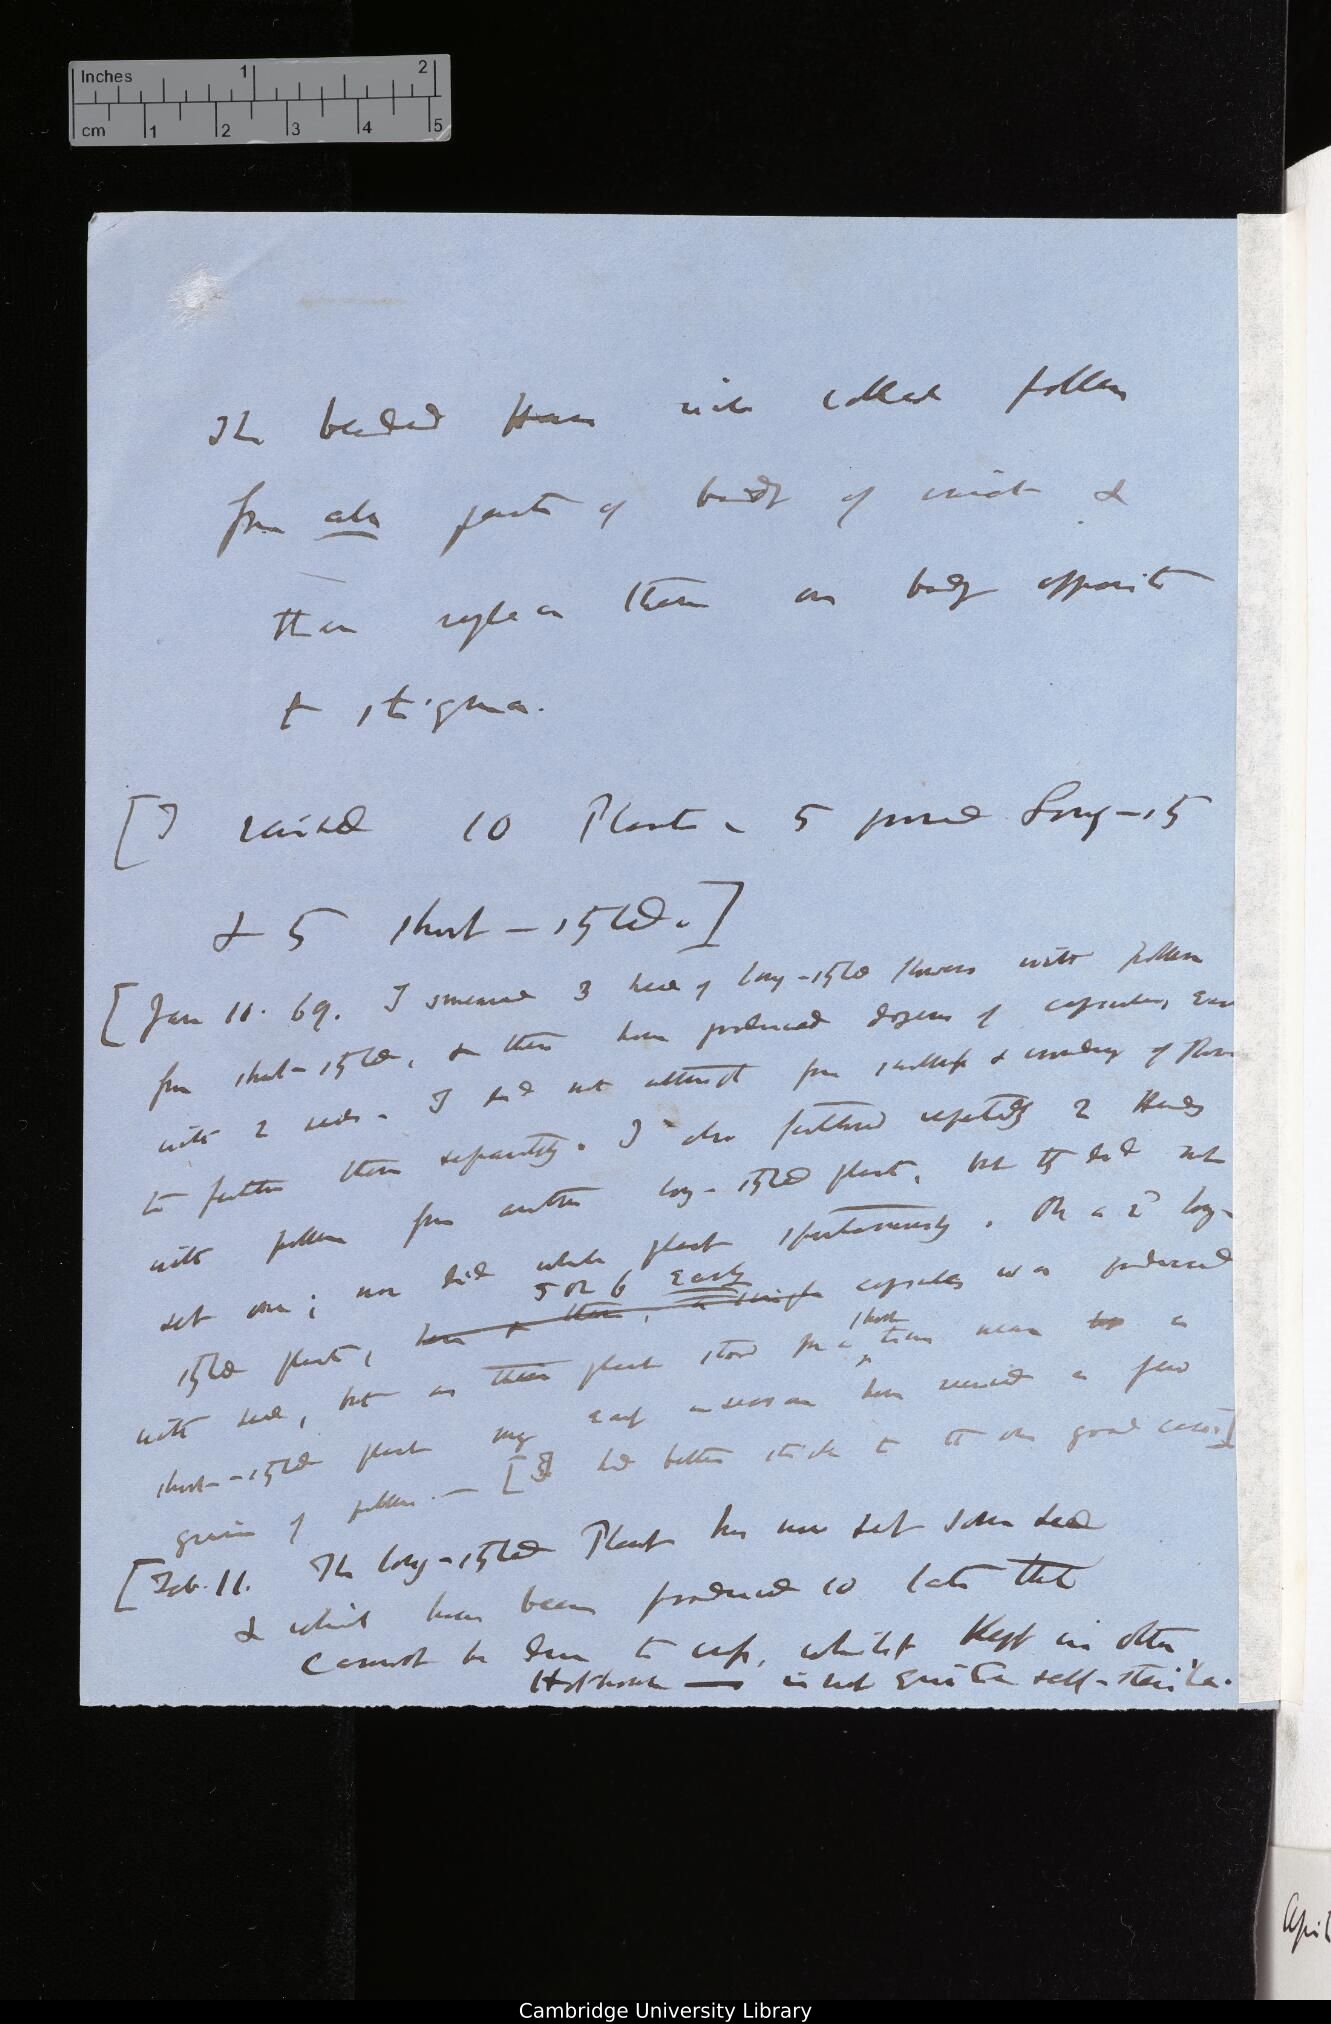 Inches 1 2
cm 1 2 3 4 5
The beaded Hairs will collect pollen
from all parts of body of insect &
then replace them on body opposite
to stigma.
[I raised 10 Plants - 5 proved Long-sty
& 5 short-styled.]
[Jan 11. 69. I smeared 3 heads of long-styled flowers with pollen
from short-styled, & these have produced dozens of capsules, each
with 2 seeds. I did not attempt from &  of flowers
to fertilise them separately. I also fertilised repeatedly 2 Heads
with pollen from another long-styled plant, but they did not
set one; nor did whole plant spontaneously. On a 2d long-
5 or 6 Each
styled plant, capsules was produced
short
with seed, but as these plants stood for a time near a
short-styled plant may have received a few
grains of pollen. — [I had better stick to the one good case.]
[Feb. 11. The long-styled Plant has now set some seed
& which have been produced so late that
cannot be due to , whilst Kept in other
Hothouse — is not quite self-sterile.
Apri
Cambridge University Library